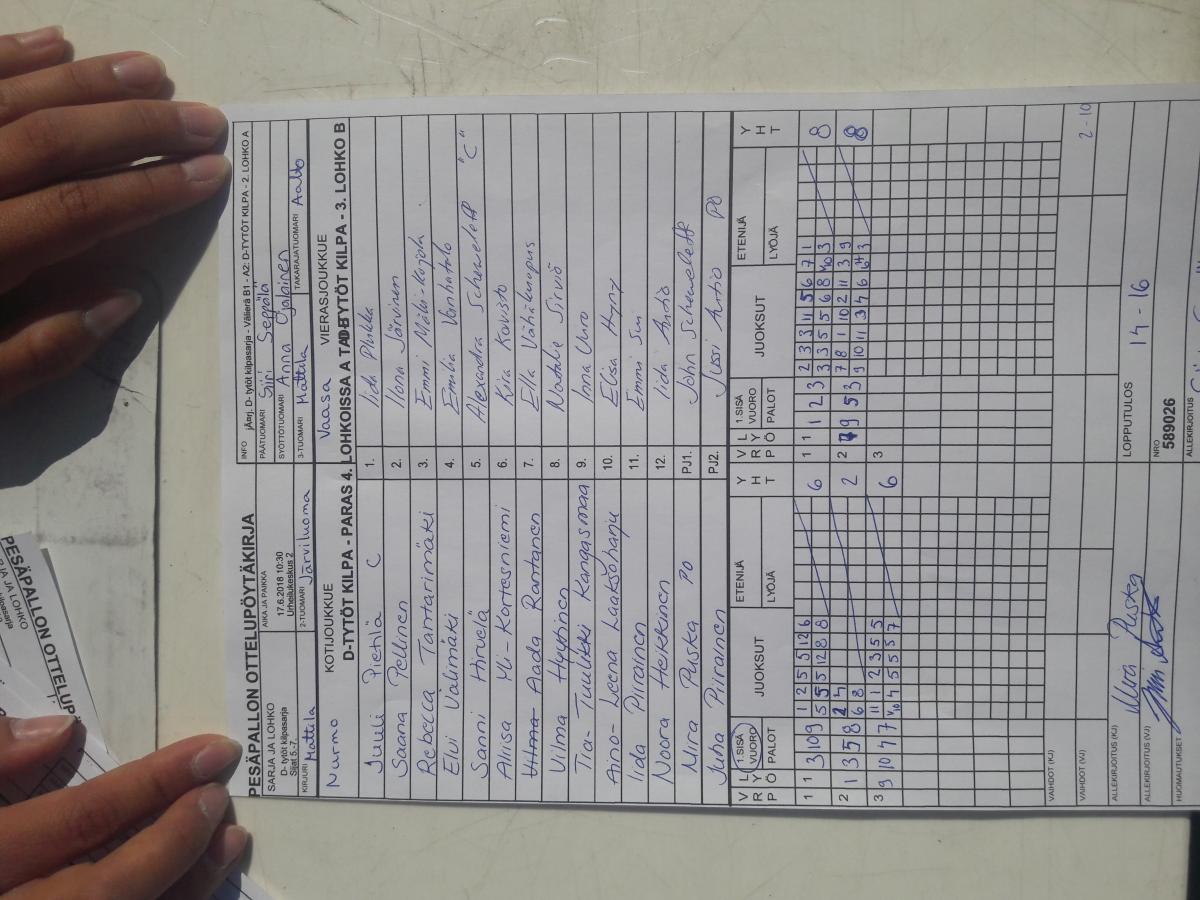 PESÄPALLON OTTELUPÖYTÄKIRJA
SARJA JA LOHKO
D- tytöt kilpasarja
Sijat 5.-7.
AIKA JA PAIKKA
17.6.2018 10:30
Urheilukeskus 2
INFO
jÄrrj. D- tytöt kilpasarja - Välierä B1 - A2: D-TYTÖT KILPA - 2. LOHKO A
PÄÄTUOMARI Siiri Seppälä
SYÖTTÖTUOMARI Anna Ojalainen
KIRJURI Mattila
2-TUOMARI Järviluoma
3-TUOMARI Mattila
TAKARAJATUOMARI Aalto
KOTIJOUKKUE
Nurmo
VIERASJOUKKUE
Vaasa
D-TYTÖT KILPA - PARAS 4. LOHKOISSA A TAI B
D-TYTÖT KILPA - 3. LOHKO B
Juuli Pienlä C 1. Iida Plukka
Saana Pellinen 2. Ilona Järvinen
Rebecca Tantarimäki 3. Emmi Mäki-Kojola
Elvi Välimäki 4. Emilia Vanhatalo
Sanni Hirvelä 5. Alexandra Scheweleff "C"
Aliisa Yli-Kortesniemi 6. Kiia Kavisto
Aada Rantanen 7. Ella Vähäkuopus
Vilma Hyytinen 8. Natalie Sirviö
Tia-Tuulikki Kangasmaa 9. Inna Uuro
Aino-Leena Laaksoharju 10. Elisa Hyny
Iida Piirainen 11. Emmi Suni
Noora Heikkinen 12. Iida Antio
Mira Puska PO PJ1. John Scheweleff
Juha Piirainen PJ2. Jussi Antio PO
V R P L Y Ö
1.SISÄ VUORO
PALOT
JUOKSUT
ETENIJÄ
LYÖJÄ
Y H T
V R P L Y Ö
1.SISÄ VUORO
PALOT
JUOKSUT
ETENIJÄ
LYÖJÄ
Y H T
1 1 3 10 9
1 2 5 5 12 6
5 5 12 8 8
6
1 1 1 2 3
2 3 3 11 5 6 7 1
3 5 5 6 8
8
2 1 3 5 8
2 4
6 8
2
2 9 5 3
7 8 1 10 12 11 3 9
9 10 11 3 4 6
8
3 9 10 4 7
11 1 2 3 5 5
4 5 5 5 7
6
3
VAIHDOT (KJ)
VAIHDOT (VJ)
2-10
ALLEKIRJOITUS (KJ) Mira Puska
LOPPUTULOS
14 - 16
ALLEKIRJOITUS (VJ)
NRO
589026
HUOMAUTUKSET
ALLEKIRJOITUS
PESÄPALLON OTTELUP